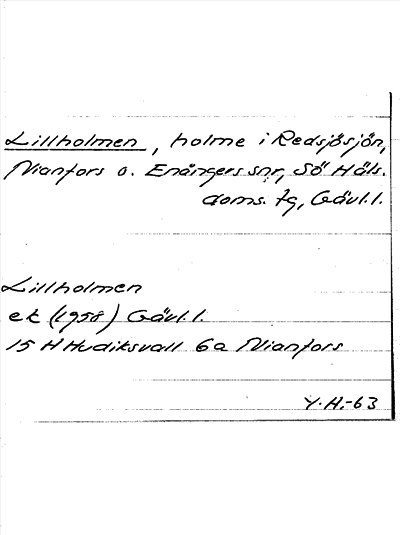 Lillholmen, holme i Redsjösjön,
Nianfors o. Enångers snr, Sö Häls.
doms. tg, Gävl.l.
Lillholmen
ek (1958) Gävl.l.
15 H Hudiksvall 6a Nianfors
Y.H.-63